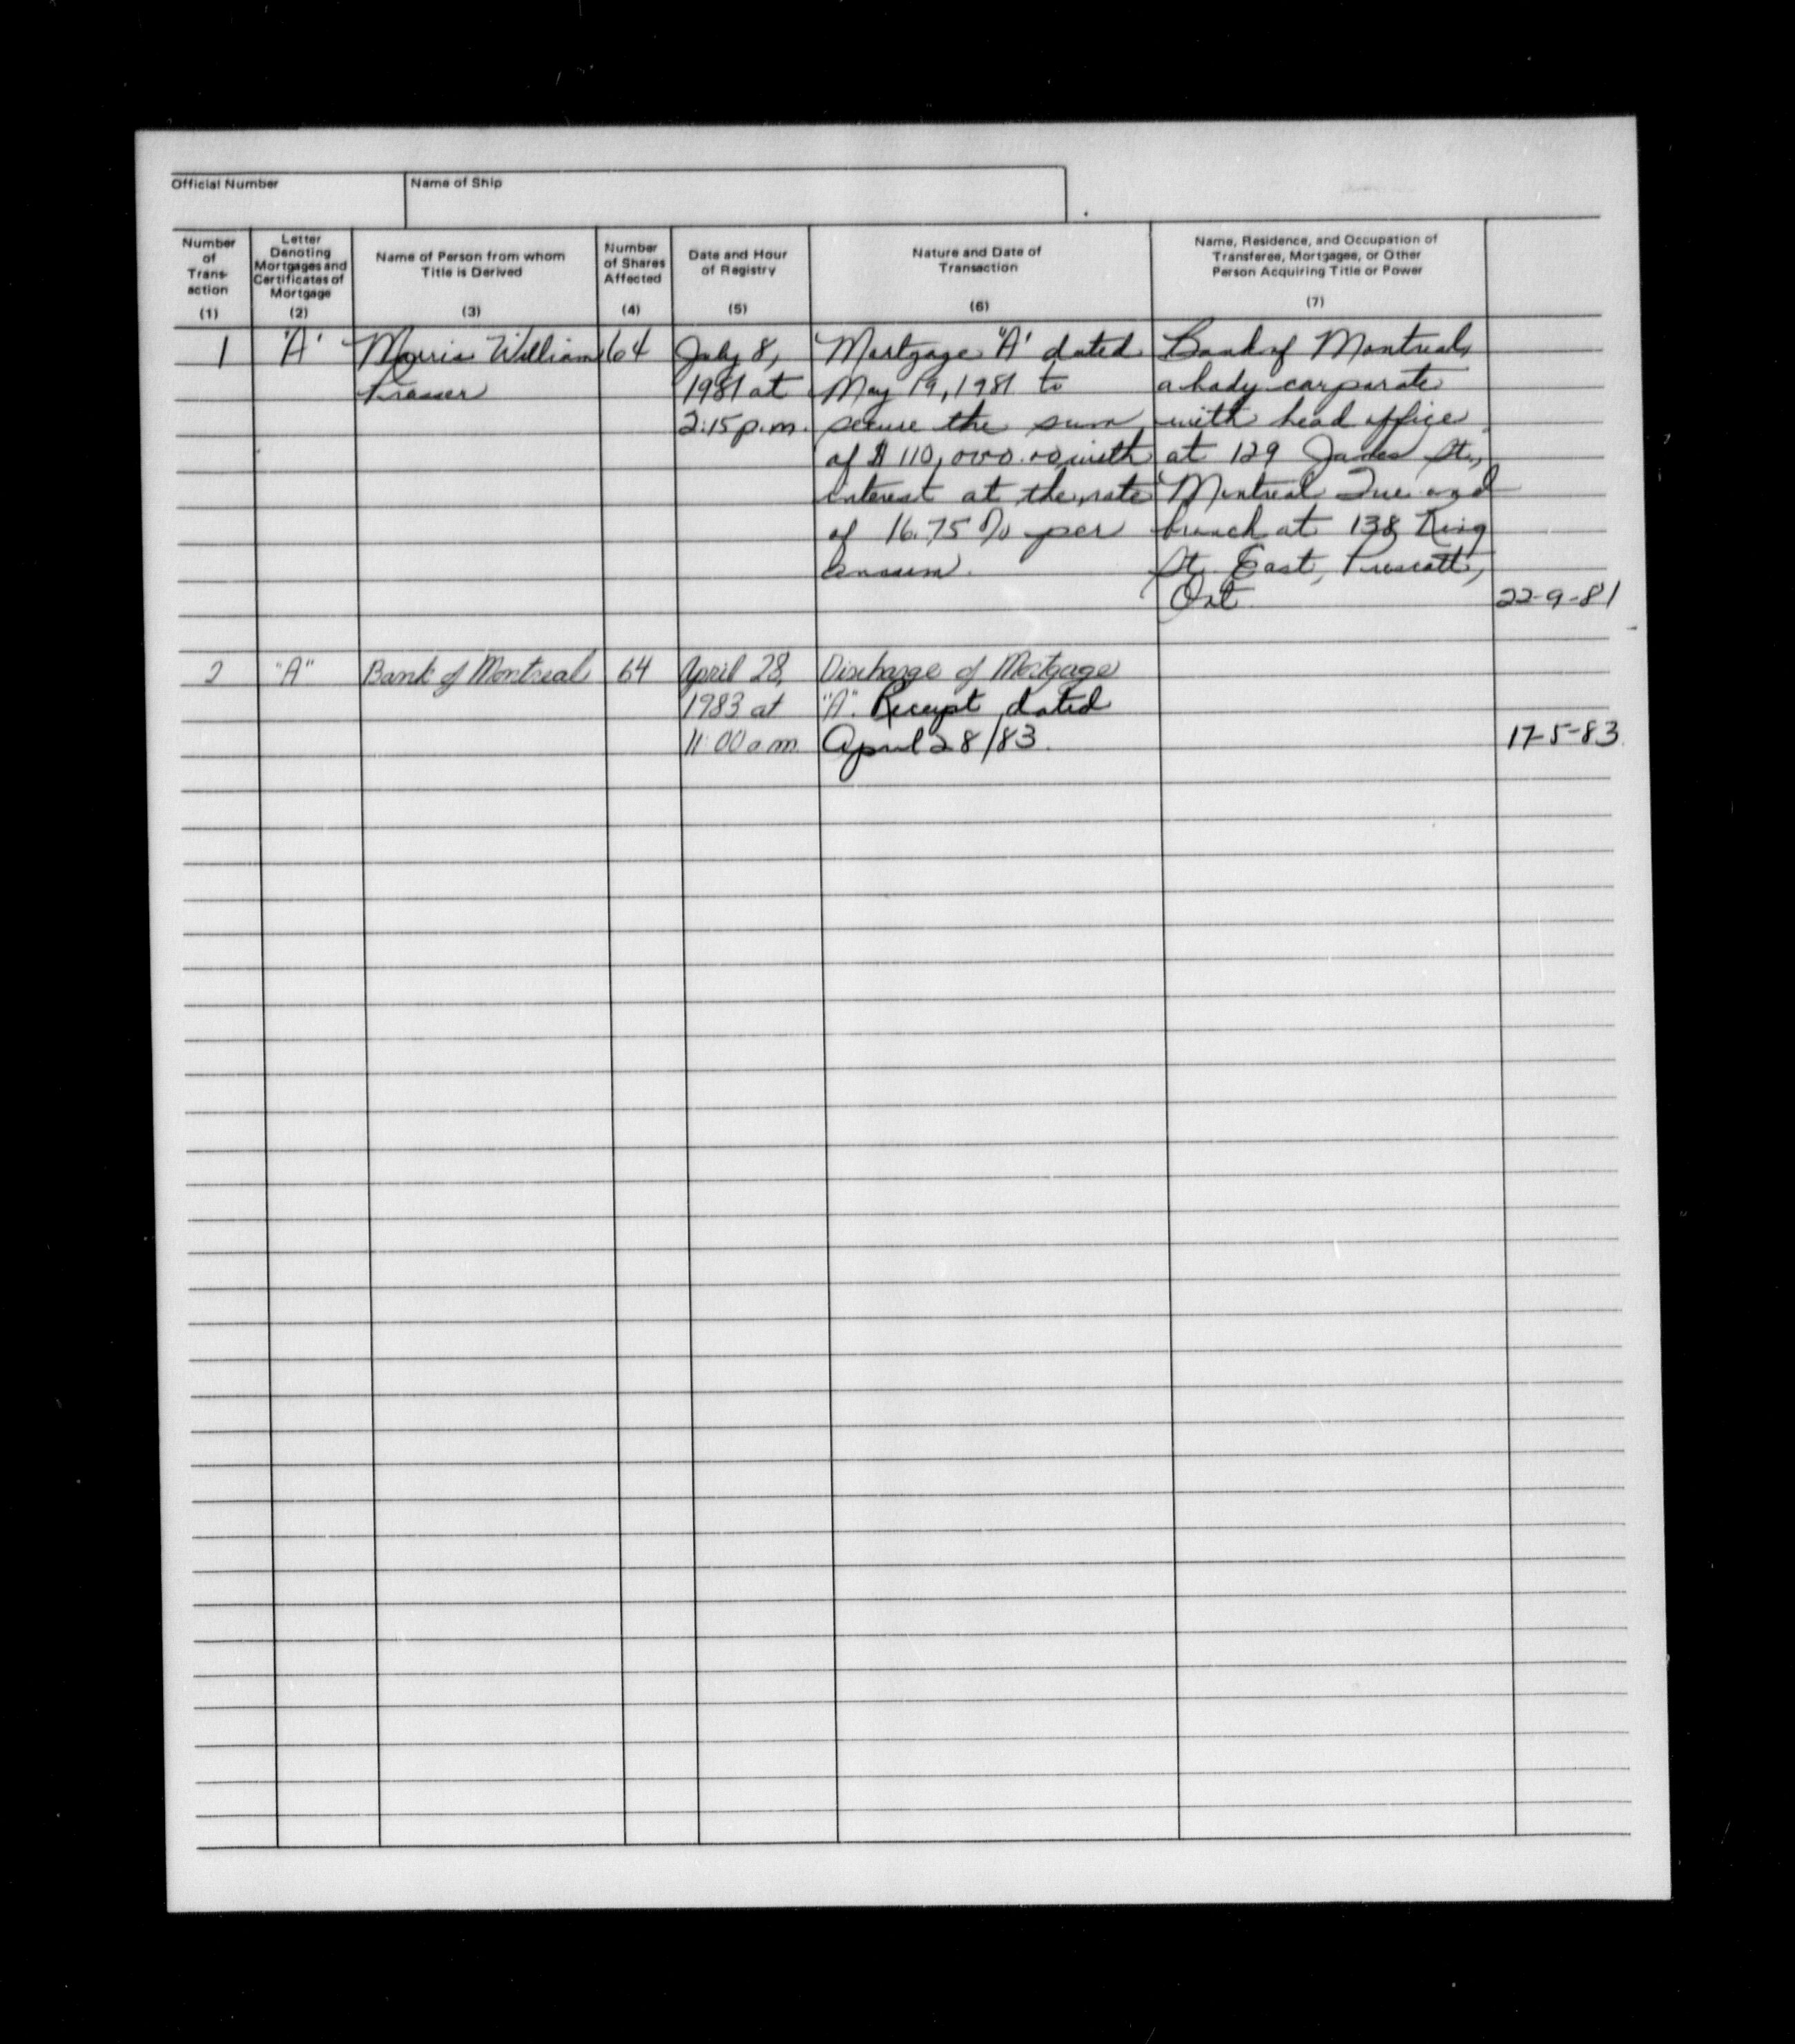 Official Number
Name of Ship
Number of Trans- action (1)
Letter Denoting Mortgages and Certificates of Mortgage (2)
Name of Person from whom Title is Derived (3)
Number of Shares Affected (4)
Date and Hour of Registry (5)
Nature and Date of Transaction (6)
Name, Residence, and Occupation of Transferee, Mortgagee, or Other Person Acquiring Title or Power (7)
1 "A" Morris William 64 July 8, Mortgage "A" dated Bank of Montreal,
1981 at May 19, 1981 to a body corporate
2:15 p.m. secure the sum with head office
of $110,000.00 with at 129 James St.,
interest at the rate Montreal Que and
of 16.75% per branch at 138 King
annum. St. East, Prescott,
Ont. 22-9-81
2 "A" Bank of Montreal 64 April 28, Discharge of Mortgage
1983 at "A". Receipt dated
11:00 a.m. April 28/83. 17-5-83